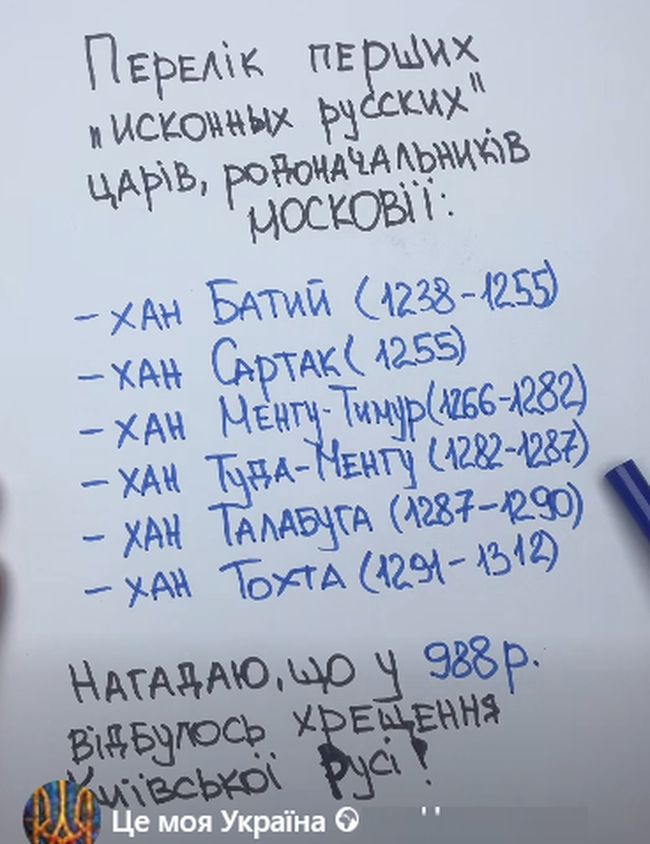 Перелік перших
"исконных русских"
царів, родоначальників
Московії:
- хан Батий (1238-1255)
- хан Сартак (1255)
- хан Менгу-Тимур (1266-1282)
- хан Туда-Менгу (1282-1287)
- хан Талабуга (1287-1290)
- хан Тохта (1291-1312)
Нагадаю, що у 988 р.
відбулось хрещення
Київської Русі!
Це моя Україна